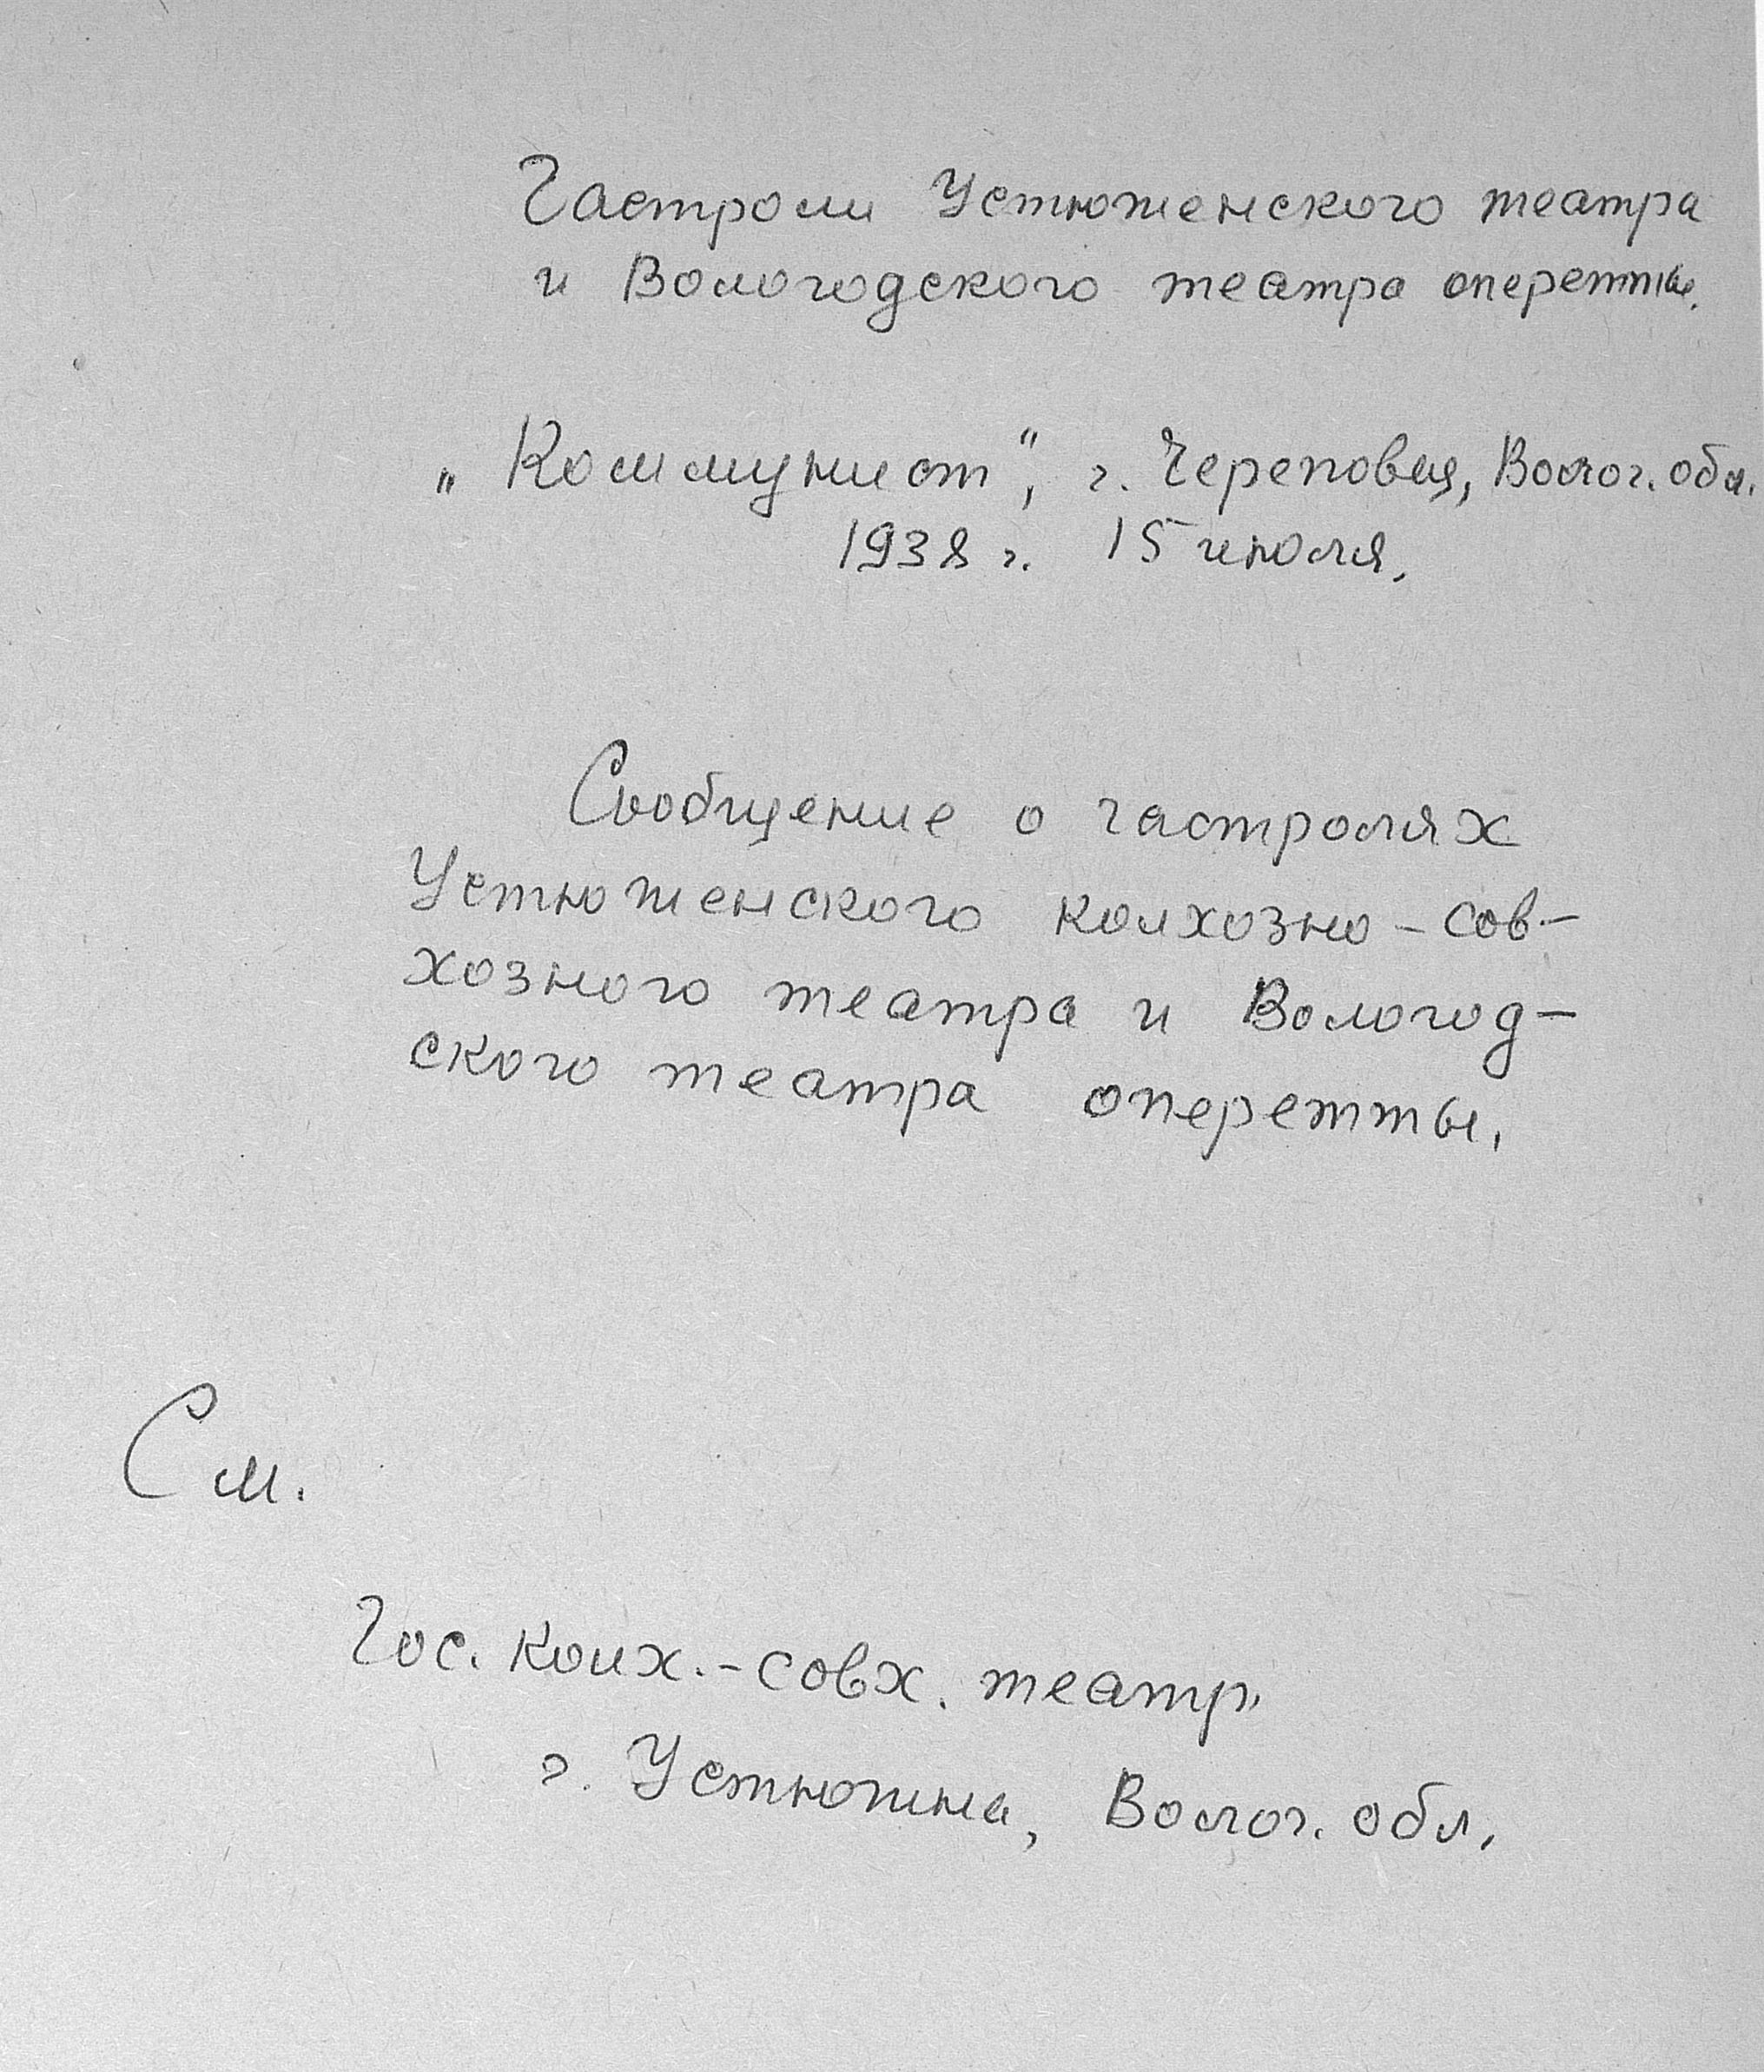 Гастроли Устюженского театра
и Вологодского театра оперетты.
„Коммунист“, г. Череповец, Волог. обл.
1938 г. 15 июля.
Сообщение о гастролях
Устюженского колхозно-сов-
хозного театра и Вологод-
ского театра оперетты.
См.
Гос. колх.-совх. театр,
г. Устюжна, Волог. обл.